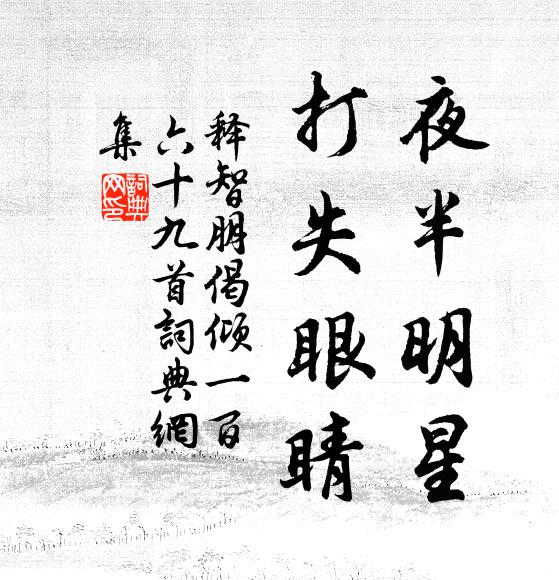 夜半明星
打失眼睛
释智朋偈倾一百
六十九首詞典網
集
詞典
网印